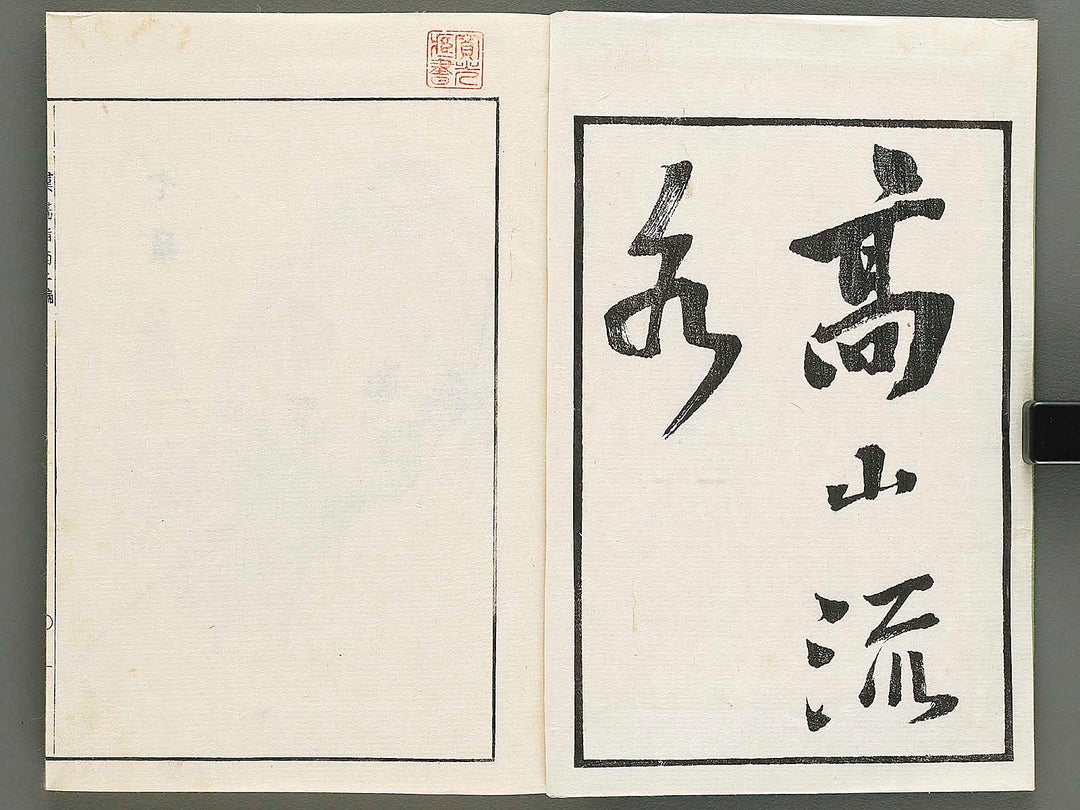 高山流
水